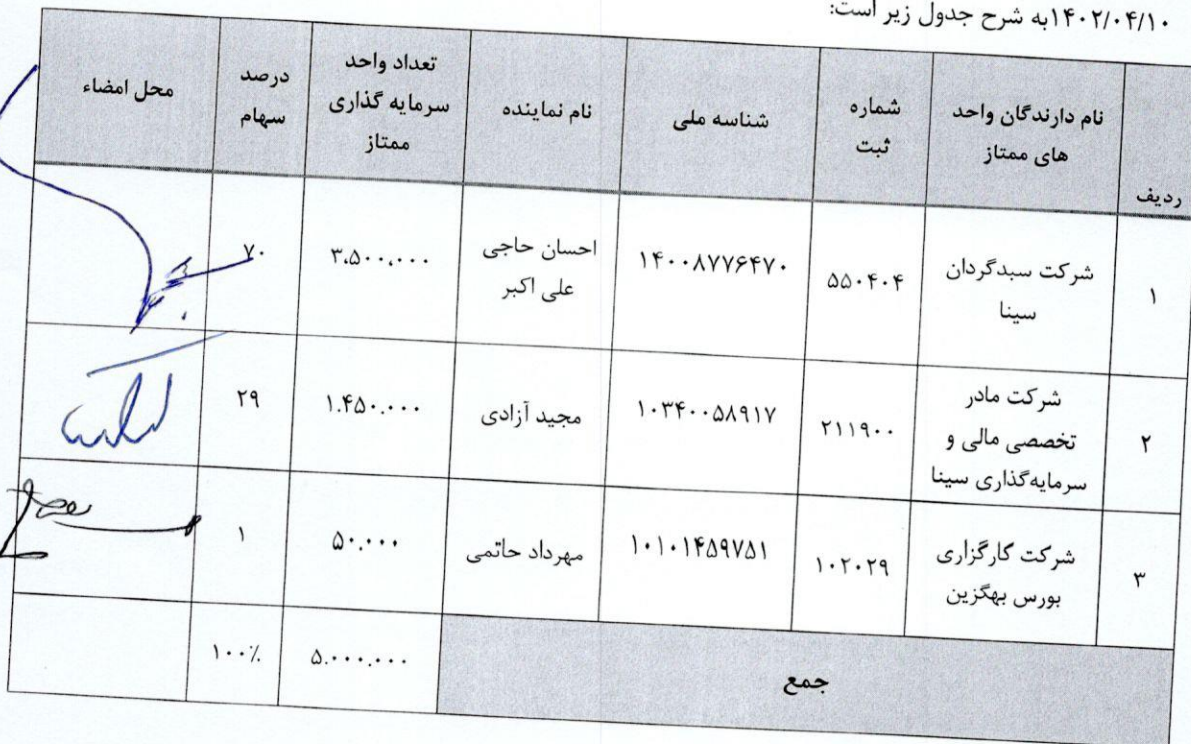 ۱۴۰۲/۰۴/۱۰به شرح جدول زیر است:
ردیف
نام دارندگان واحد
های ممتاز
شماره
ثبت
شناسه ملی
نام نماینده
تعداد واحد
سرمایه گذاری
ممتاز
درصد
سهام
محل امضاء
۱
شرکت سبدگردان
سینا
۵۵۰۴۰۴
۱۴۰۰۸۷۷۶۴۷۰
احسان حاجی
علی اکبر
۳،۵۰۰،۰۰۰
۷۰
۲
شرکت مادر
تخصصی مالی و
سرمایه‌گذاری سینا
۲۱۱۹۰۰
۱۰۳۴۰۰۵۸۹۱۷
مجید آزادی
۱.۴۵۰.۰۰۰
۲۹
۳
شرکت کارگزاری
بورس بهگزین
۱۰۲۰۲۹
۱۰۱۰۱۴۵۹۷۵۱
مهرداد حاتمی
۵۰.۰۰۰
۱
جمع
۵.۰۰۰.۰۰۰
۱۰۰٪